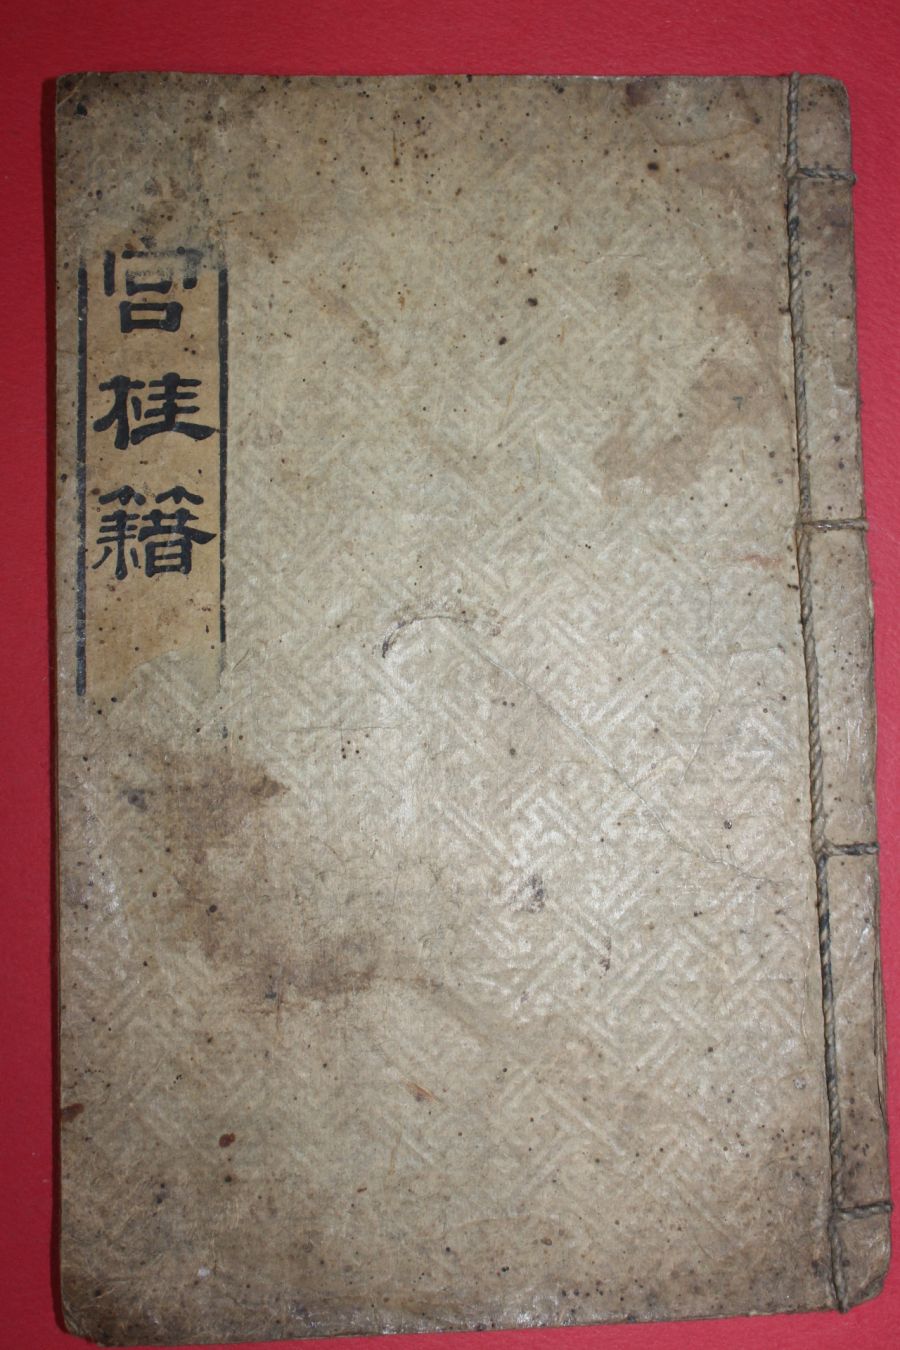 宮桂籍